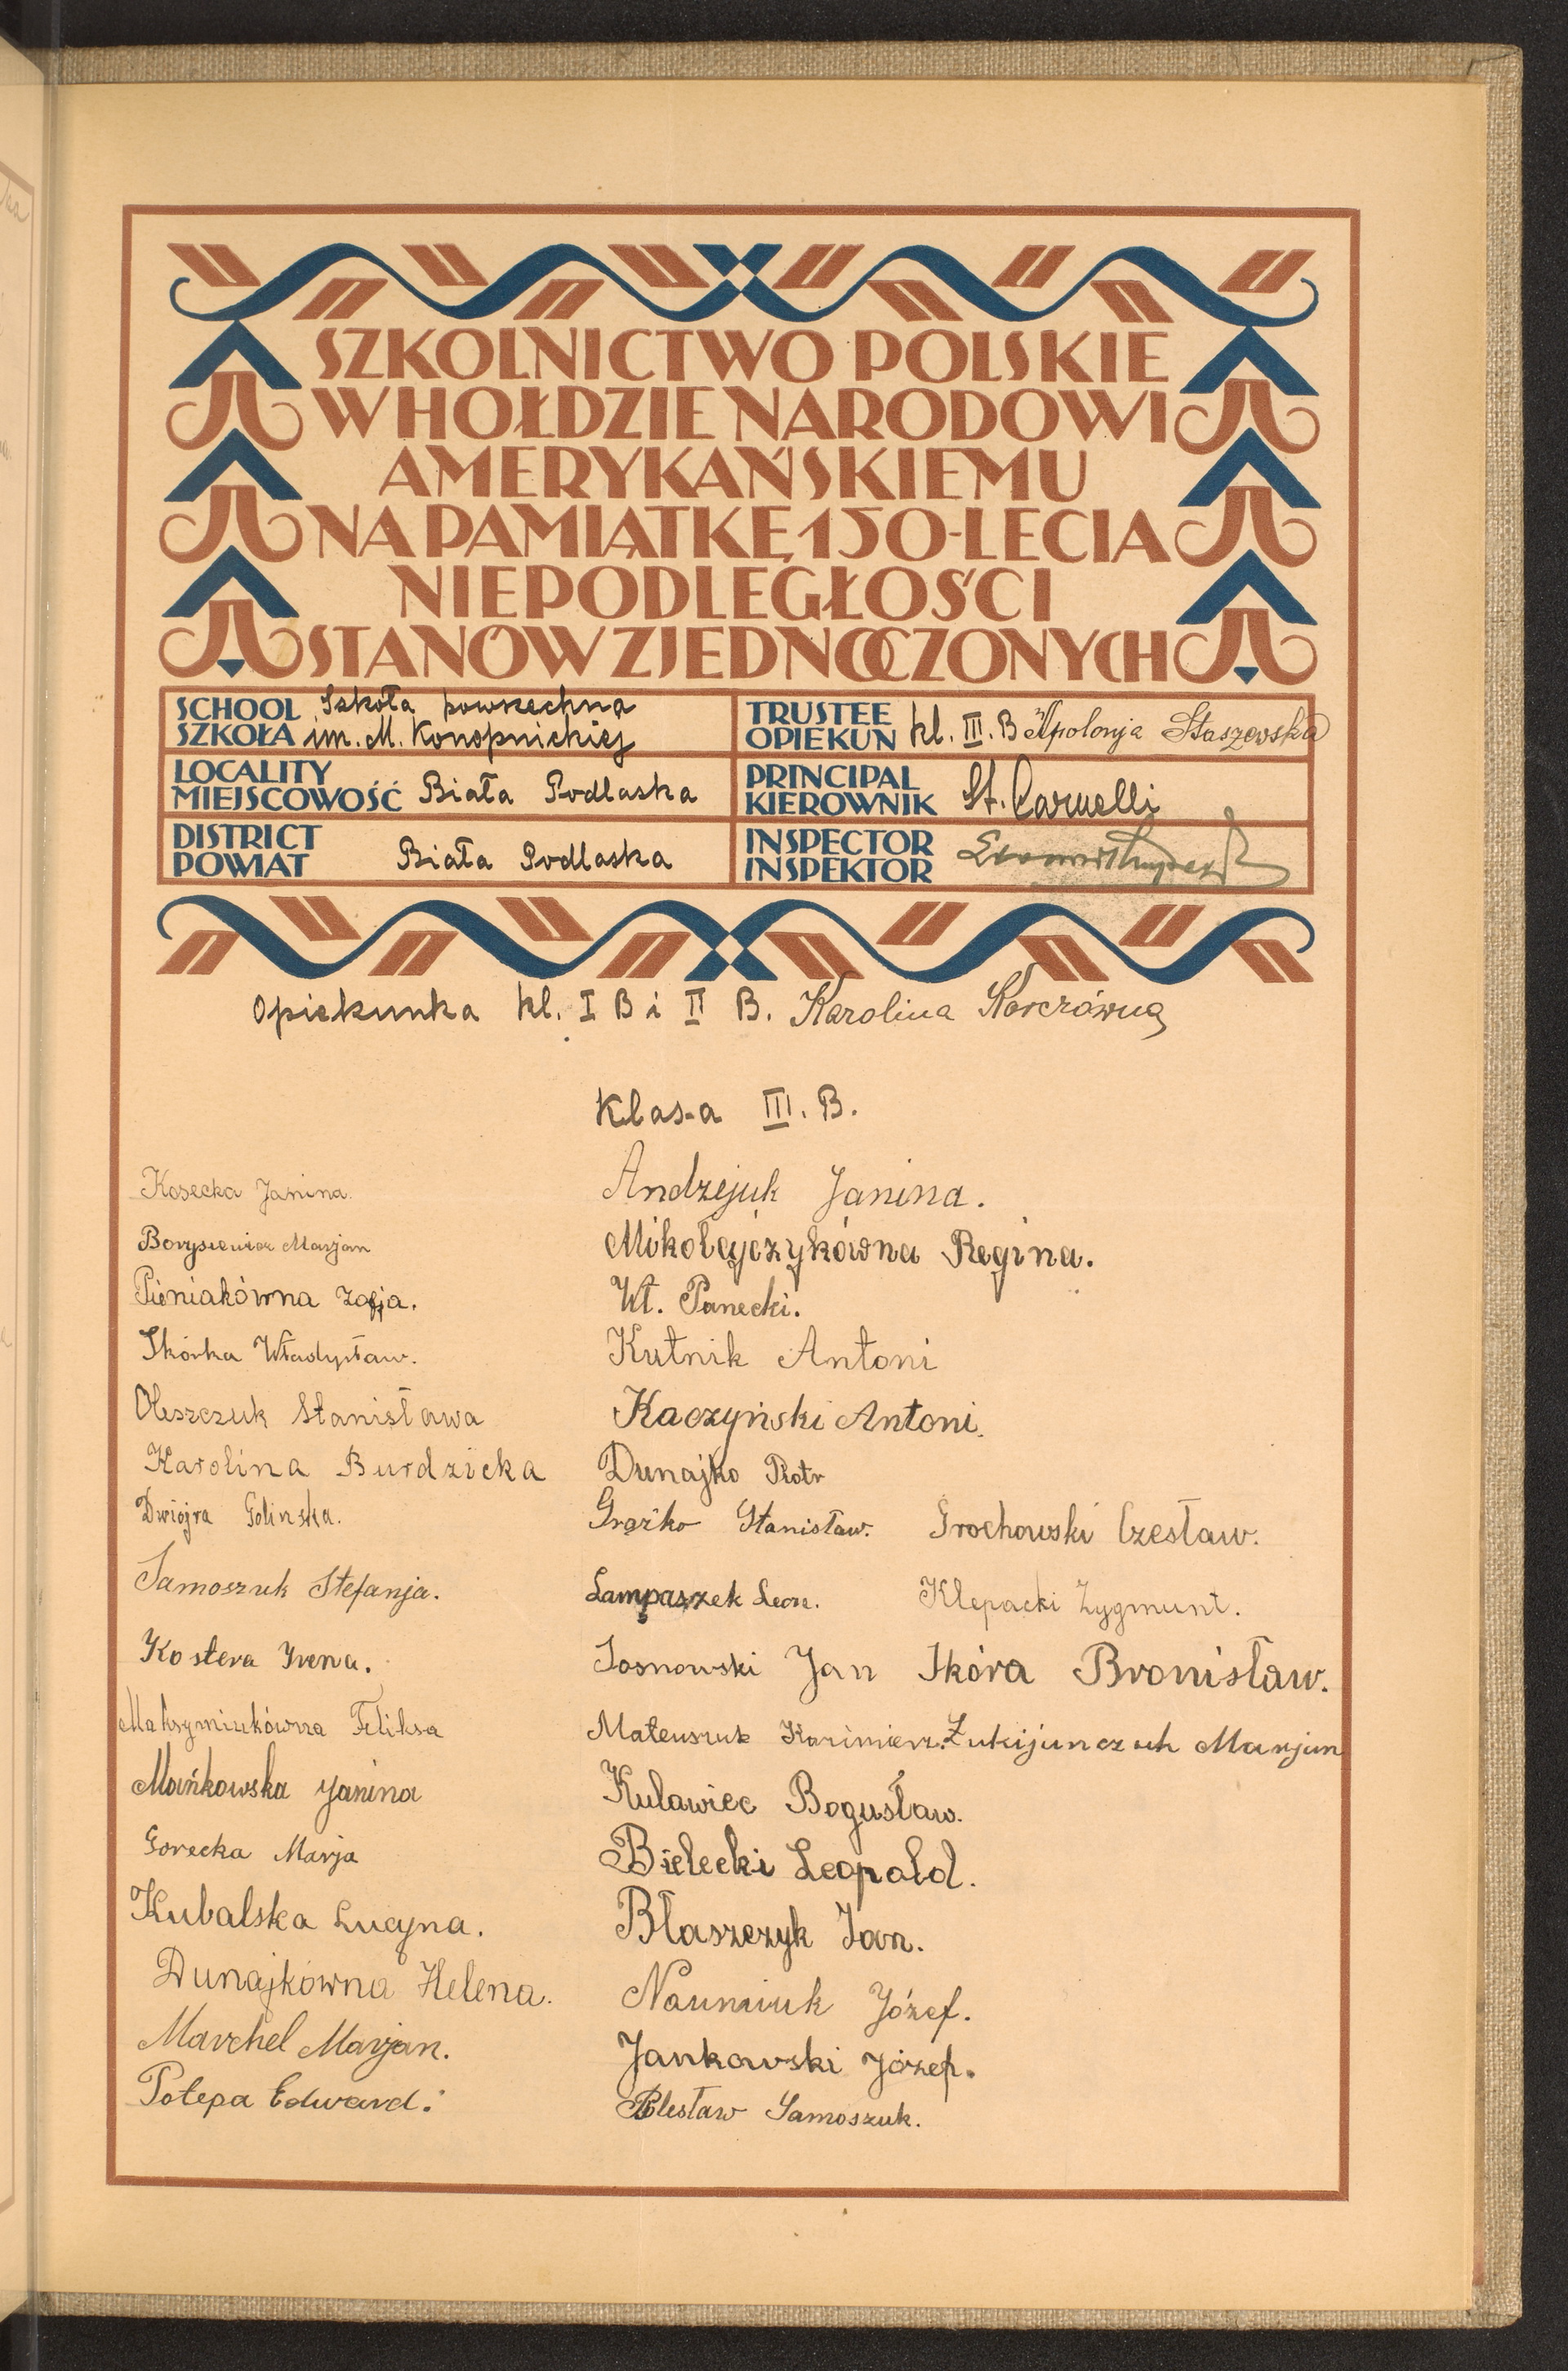 SZKOLNICTWO POLSKIE
W HOŁDZIE NARODOWI
AMERYKAŃSKIEMU
NA PAMIĄTKĘ 150-LECIA
NIEPODLEGŁOŚCI
STANÓW ZJEDNOCZONYCH
SCHOOL SZKOŁA Szkoła powszechna im. M. Konopnickiej
TRUSTEE OPIEKUN kl. III. B Apolonja Staszewska
LOCALITY MIEJSCOWOŚĆ Biała Podlaska
PRINCIPAL KIEROWNIK St. Carnelli
DISTRICT POWIAT Biała Podlaska
INSPECTOR INSPEKTOR
Opiekunka kl. I B i II B. Karolina Karczówna
Klasa III. B.
Kosecka Janina.
Borysiewicz Marjan
Pieniakówna Zofja.
Skórka Władysław.
Oleszczuk Stanisława
Karolina Burdzicka
Dwojra Golinska.
Samoszuk Stefanja.
Kostera Irena.
Maksymiukówna Feliksa
Mańkowska Janina
Gorecka Marja
Kubalska Lucyna.
Dunajkówna Helena.
Marchel Marjan.
Potepa Edward.
Andzejuk Janina.
Mikołajczykówna Regina.
Wł. Panecki.
Kutnik Antoni
Kaczyński Antoni.
Dunajko Piotr
Grażko Stanisław. Grochowski Czesław.
Lampaszek Leon. Klepacki Zygmunt.
Sosnowski Jan Skóra Bronisław.
Mateuszuk Kazimierz. Łukijunczuk Marjan
Kulawiec Bogusław.
Bielecki Leopold.
Błaszczyk Jan.
Naumiuk Józef.
Jankowski Józef.
Bolesław Samoszuk.